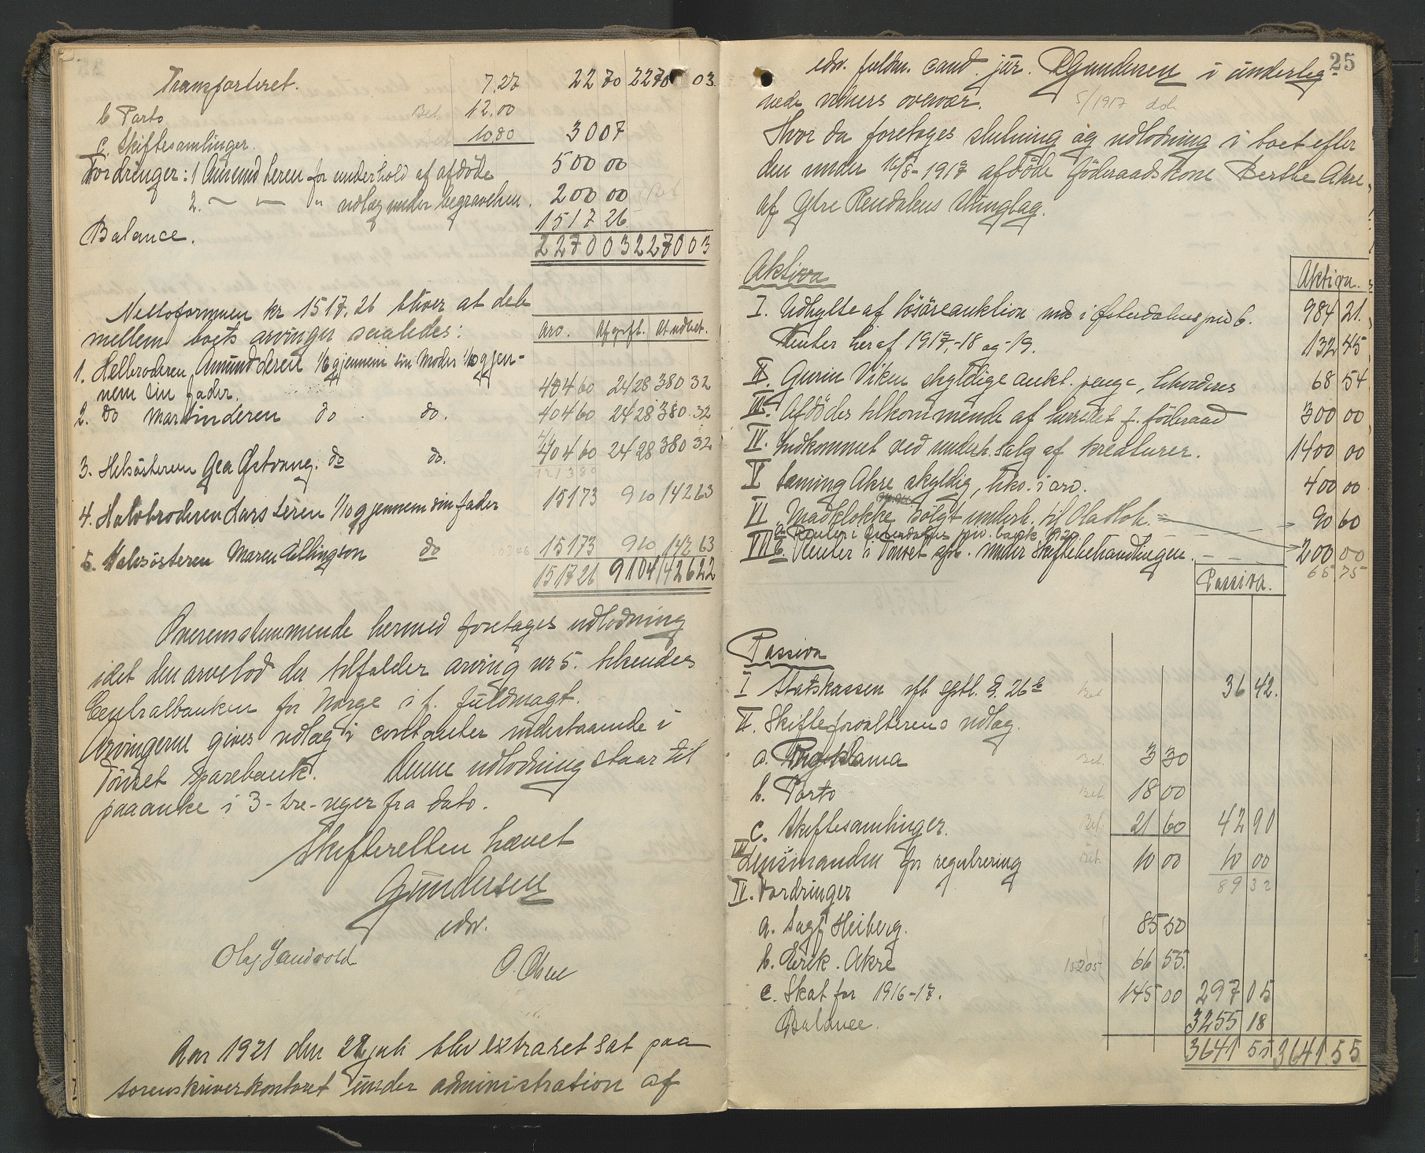 Transporteret. 7.27 22 70 2270 03
b Porto Bet. 12.00
c. Skiftesamlinger. 10.80 30 07
Fordringer: 1 Amund deren for underhold af afdöde 500 00
2. — " — " udlæg under begravelsen. 200 00
Balance. 1517 26
2270 03 2270 03
Nettoformuen kr 1517.26 bliver at dele
mellem boets arvinger saaledes:
Arv. Afgift. At udbet.
1. Helbroderen Amund deren 1/6 gjennem sin Moder 1/10 gjen-
nem sin fader. 404 60 24 28 380 32
2. do do do. 404 60 24 28 380.32
3. Helsösteren Gea do do. 404 60 24 28 380 32
4. Halvbroderen Lars deren 1/10 gjennem sin fader 151 73 9 10 142 63
5. Halvsösteren Maren Ellingson do 151 73 9 10 142 63
1517 26 91 04 1426 22
Overensstemmende hermed foretages udlodning
idet den arvelod der tilfalder arving nr 5. tilsendes
Centralbanken for Norge i f. fuldmagt.
Arvingerne gives udlæg i contanter indestaaende i
Tönset sparebank. Denne udlodning staar til
paaanke i 3-tre-uger fra dato.
Skifteretten hævet
Gundersen
edv.
Olaf Sandvold
Aar 1921 den 22 juli blev extraret sat paa
sorenskriverkontoret under administration af
25
edv. fuldm. cand. jur. Gundersen i underteg-
nede vidners overvær.
5/1917
Hvor da foretoges slutning og udlodning i boet efter
den under 16/8-1917 afdöde föderaadskone Berthe Akre
af Ytre Rendalens thinglag.
Aktiva Aktiva.
I. Udbytte af lösöreauktion inds i Østerdalens priv b. 984 21.
Renter heraf 1917,-18 og -19. 132 45
II. Gurin Viken skyldige aukt. penge, 68 54
III. Afdödes tilkommende af herredet f. föderaad 300 00
IV. Indkommet ved underh. salg af kreaturer. 1400 00
V Akre skyldig, i arv. 400 00
VI. solgt underh. til Ola 90 60
VII a. Renter i Østerdalens priv. bank 1920 200 00
b. Renter i Tönset spb. under Skiftebehandlingen. 65 75
Passiva.
Passiva
I Statskassen eft sptl. § 26 a Bet 36 42.
II. Skifteforvalterens udlæg.
a. Proklama Bet 3 30
b. Porto Bet 18 00
c. Skiftesamlinger. Bet. 21 60 42 90
III Lensmanden for regulering Bet. 10 00 10 00
89 32
IV. Fordringer
a. Sagf. Heiberg. 85 50
b. Erik. Akre 152.05 66 55.
c. Skat for 1916-17. 145 00 297 05
Balance. 3255 18
3641 55 3641.55